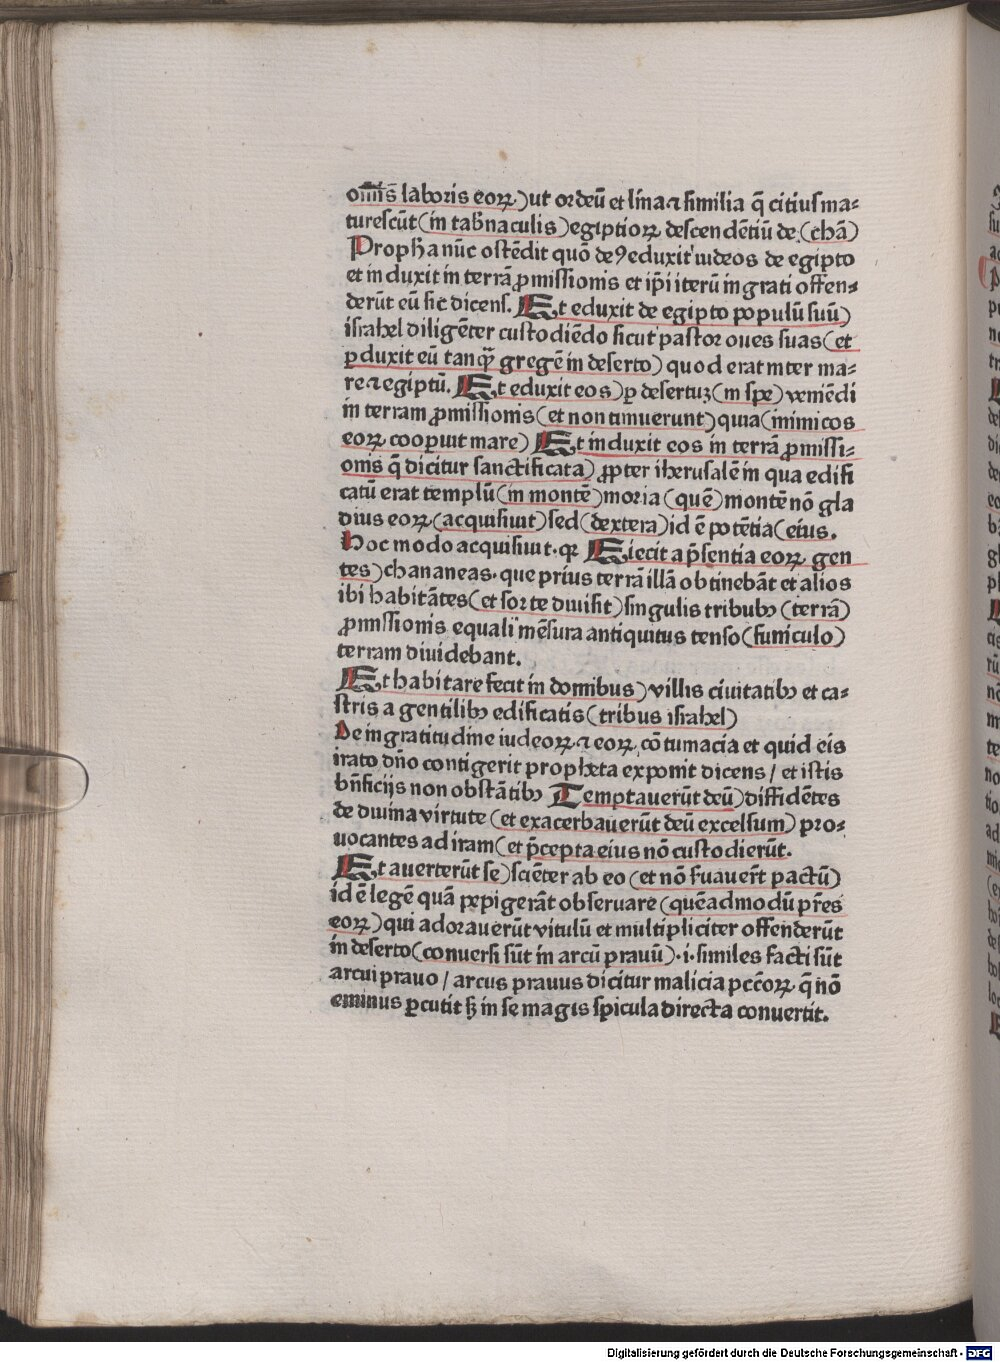 om̅is̄ laboris eoꝝ) ut ordeū et lina ⁊ similia q̄ citius ma⸗
turescūt (in tab̄naculis) egiptioꝝ descendētiū de (chā)
Propha nūc ostēdit quō deꝰ eduxit iudeos de egipto
et induxit in terrā ꝓmissionis et ip̄i iterū ingrati offen⸗
derūt eū sic dicens. Et eduxit de egipto populū suū)
israhel diligēter custodiēdo sicut pastor oues suas (et
ꝑduxit eū tanqȝ gregē in deserto) quod erat inter ma⸗
re ⁊ egiptū. Et eduxit eos) ꝑ desertuꝫ (in spe) veniēdi
in terram ꝓmissionis (et non timuerunt) quia (inimicos
eoꝝ cooꝑuit mare) Et induxit eos in terrā ꝓmissi⸗
onis q̄ dicitur sanctificata) ꝓpter iherusalē in qua edifi
catū erat templū (in montē) moria (quē) montē nō gla
dius eoꝝ (acquisiuit) sed (dextera) id ē potētia (eius.
Hoc modo acquisiuit. qꝛ Eiecit a p̄sentia eoꝝ gen
tes) chananeas. que prius terrā illā obtinebāt et alios
ibi habitātes (et sorte diuisit) singulis tribubꝫ (terrā)
ꝓmissionis equali mēsura antiquitus tenso (funiculo)
terram diuidebant.
Et habitare fecit in domibus) villis ciuitatibꝫ et ca⸗
stris a gentilibꝫ edificatis (tribus israhel)
De ingratitudine iudeoꝝ ⁊ eoꝝ cōtumacia et quid eis
irato dn̄o contigerit propheta exponit dicens / et istis
bn̄ficijs non obstātibꝫ Temptauerūt deū) diffidētes
de diuina virtute (et exacerbauerūt deū excelsum) pro⸗
uocantes ad iram (et p̄cepta eius nō custodierūt.
Et auerterūt se) sciēter ab eo (et nō ẜuauer̄t pactū)
id ē legē quā pepigerāt obseruare (quēadmodū pr̄es
eoꝝ) qui adorauerūt vitulū et multipliciter offenderūt
in deserto (conuersi sūt in arcū prauū) .i. similes facti sūt
arcui prauo / arcus prauus dicitur malicia pcc̄oꝝ q̄ nō
eminus ꝑcutit sꝫ in se magis spicula directa conuertit.
Digitalisierung gefördert durch die Deutsche Forschungsgemeinschaft - DFG